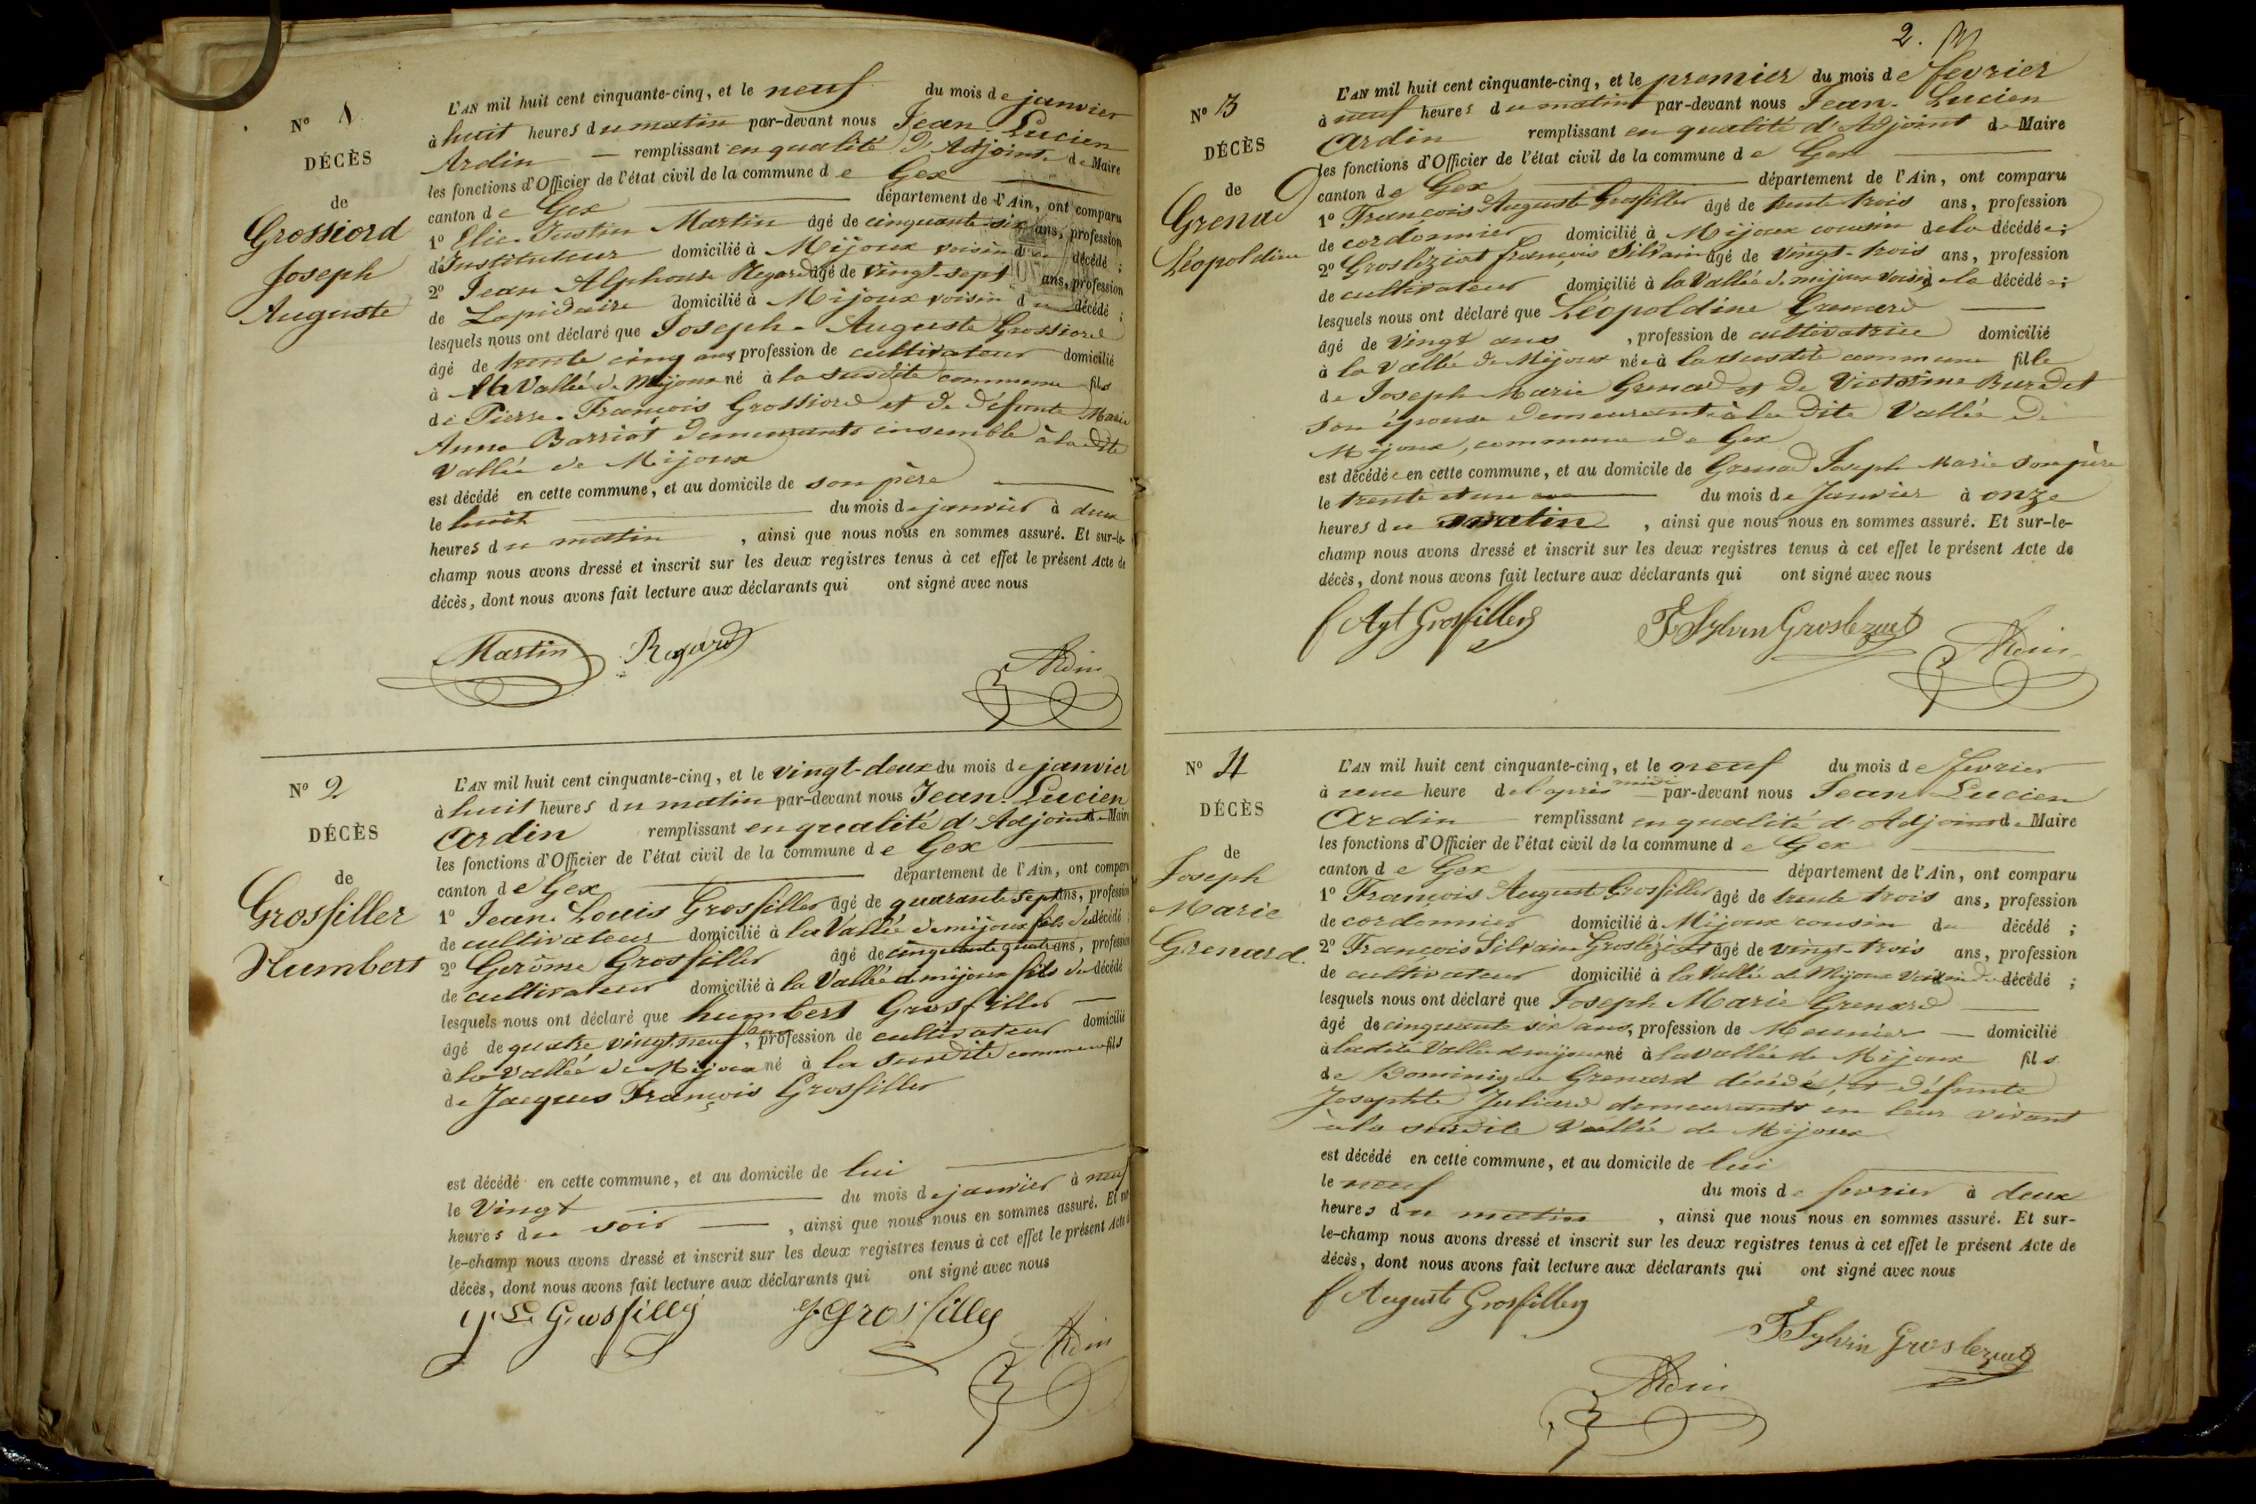 Nº 1
DÉCÈS
de
Grossiord
Joseph
Auguste
L'AN mil huit cent cinquante-cinq, et le neuf du mois de janvier
à huit heures du matin par-devant nous Jean-Lucien
Ardin — remplissant en qualité d'Adjoint de Maire
les fonctions d'Officier de l'état civil de la commune de Gex
canton de Gex département de l'Ain, ont comparu
1º Elie-Justin Martin âgé de cinquante-six ans, profession
d'Instituteur domicilié à Mijoux voisin du décédé ;
2º Jean Alphonse Regard âgé de vingt-sept ans, profession
de Lapidaire domicilié à Mijoux voisin du décédé ;
lesquels nous ont déclaré que Joseph-Auguste Grossiord
âgé de trente cinq ans profession de cultivateur domicilié
à la Vallée de Mijoux né à la susdite commune fils
de Pierre-François Grossiord et de défunte Marie
Anne Barriot demeurants ensemble à la dite
Vallée de Mijoux
est décédé en cette commune, et au domicile de son père
le huit du mois de janvier à deux
heures du matin , ainsi que nous nous en sommes assuré. Et sur-le-
champ nous avons dressé et inscrit sur les deux registres tenus à cet effet le présent Acte de
décès, dont nous avons fait lecture aux déclarants qui ont signé avec nous
Martin Regard Ardin
Nº 2
DÉCÈS
de
Grosfiller
Humbert
L'AN mil huit cent cinquante-cinq, et le vingt-deux du mois de janvier
à huit heures du matin par-devant nous Jean-Lucien
Ardin remplissant en qualité d'Adjoint de Maire
les fonctions d'Officier de l'état civil de la commune de Gex
canton de Gex département de l'Ain, ont comparu
1º Jean-Louis Grosfiller âgé de quarante sept ans, profession
de cultivateur domicilié à la Vallée de mijoux fils du décédé ;
2º Gerôme Grosfiller âgé de cinquante quatre ans, profession
de cultivateur domicilié à la Vallée de mijoux fils du décédé
lesquels nous ont déclaré que humbert Grosfiller —
âgé de quatre vingt neuf ans, profession de cultivateur domicilié
à la vallée de Mijoux né à la susdite commune fils
de Jacques François Grosfiller
est décédé en cette commune, et au domicile de lui
le vingt du mois de janvier à neuf
heures du soir — , ainsi que nous nous en sommes assuré. Et sur
le-champ nous avons dressé et inscrit sur les deux registres tenus à cet effet le présent Acte de
décès, dont nous avons fait lecture aux déclarants qui ont signé avec nous
J Ls Grosfilley J Grosfilley Ardin
2.
Nº 3
DÉCÈS
de
Grenard
Léopoldine
L'AN mil huit cent cinquante-cinq, et le premier du mois de fevrier
à neuf heures du matin par-devant nous Jean-Lucien
Ardin remplissant en qualité d'Adjoint de Maire
les fonctions d'Officier de l'état civil de la commune de Gex
canton de Gex département de l'Ain, ont comparu
1º François Auguste Grosfiller âgé de trente trois ans, profession
de cordonnier domicilié à Mijoux cousin de la décédée ;
2º Grosléziat françois Silvain âgé de vingt-trois ans, profession
de cultivateur domicilié à la Vallée de mijoux voisin de la décédée ;
lesquels nous ont déclaré que Léopoldine Grenard
âgé de vingt ans , profession de cultivatrice domicilié
à la Vallée de Mijoux née à la susdite commune fille
de Joseph Marie Grenard et de Victorine Burdet
son épouse demeurant à la dite Vallée de
Mijoux, commune de Gex
est décédée en cette commune, et au domicile de Grenard Joseph Marie son père
le trente et un du mois de Janvier à onze
heures du matin , ainsi que nous nous en sommes assuré. Et sur-le-
champ nous avons dressé et inscrit sur les deux registres tenus à cet effet le présent Acte de
décès, dont nous avons fait lecture aux déclarants qui ont signé avec nous
f Agt Grosfilley F Sylvin Groslezuat Ardin
Nº 4
DÉCÈS
de
Joseph
Marie
Grenard.
L'AN mil huit cent cinquante-cinq, et le neuf du mois de fevrier
à une heure de l'après midi par-devant nous Jean Lucien
Ardin remplissant en qualité d'Adjoint de Maire
les fonctions d'Officier de l'état civil de la commune de Gex
canton de Gex département de l'Ain, ont comparu
1º François Auguste Grosfiller âgé de trente trois ans, profession
de cordonnier domicilié à Mijoux cousin du décédé ;
2º François Silvain Grosléziat âgé de vingt-trois ans, profession
de cultivateur domicilié à la Vallée de Mijoux Voisin du décédé ;
lesquels nous ont déclaré que Joseph Marie Grenard
âgé de cinquante six ans, profession de Meunier — domicilié
à la dite Vallée de mijoux né à la vallée de Mijoux fils
de Dominique Grenard décédé, et défunte
Josephte Juliard demeurants en leur vivant
à la susdite Vallée de Mijoux
est décédé en cette commune, et au domicile de lui
le neuf du mois de fevrier à deux
heures du matin , ainsi que nous nous en sommes assuré. Et sur-
le-champ nous avons dressé et inscrit sur les deux registres tenus à cet effet le présent Acte de
décès, dont nous avons fait lecture aux déclarants qui ont signé avec nous
f Auguste Grosfilley
F Sylvin Groslezuat
Ardin